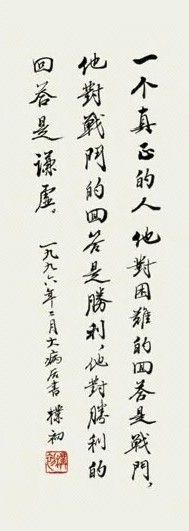 一个真正的人他對困難的回答是戰鬥，
他對戰鬥的回答是勝利，他對勝利的
回答是谦虛。
一九九六年二月大病后書 樸初